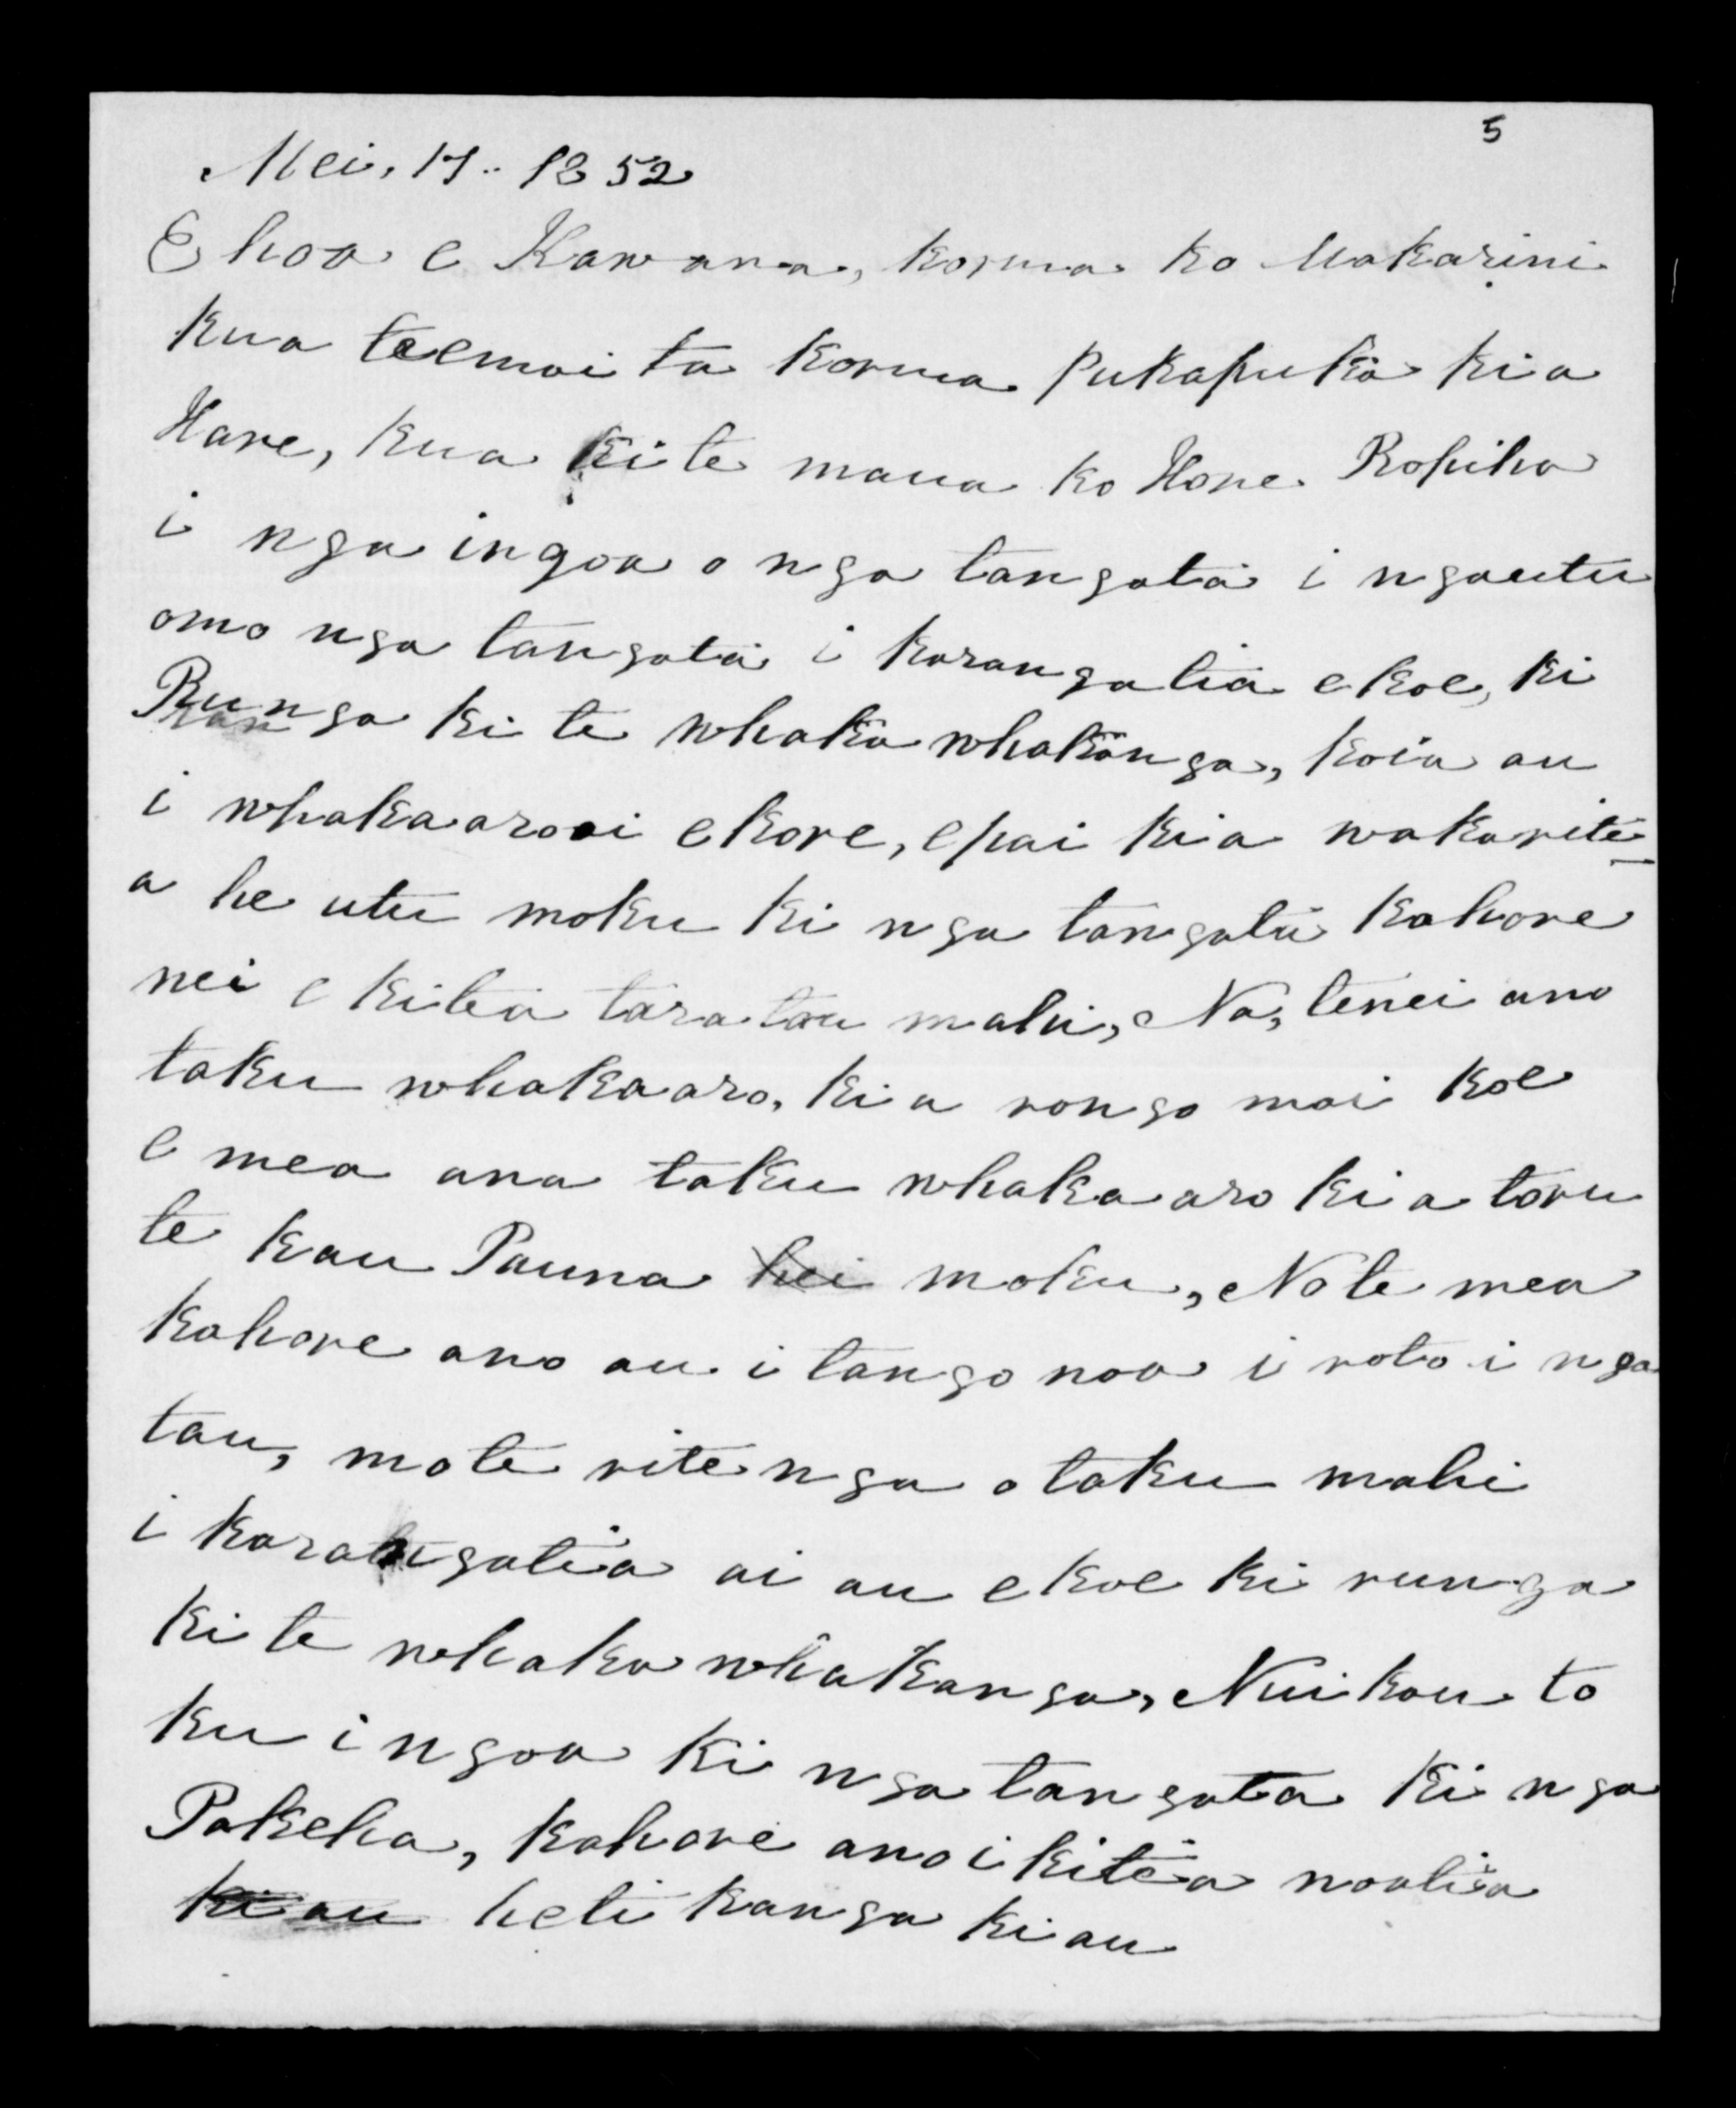 5
Mei, 17.. 1852
E hoa e Kawana, korua ko Makarini
kua taemai ta korua pukapuka kia
Hare, kua kite maua ko Hone Ropiha
i nga ingoa o nga tangata i ngautu
omo nga tangata i karangatia e koe, ki
Runga ki te whakawhakanga, koia au
i whakaaroai ekore, epai kia wakarite-
a he utu moku ki nga tangata kahore
nei e kitea taratou mahi, Na, tenei ano
taku whakaaro, kia rongo mai koe
e mea ana taku whakaaro kia toru
te kau Pauna hei moku, Note mea
kahore ano au i tango noa i roto i nga
tau, mote ritenga otaku mahi
i karangatia ai au ekoe ki runga
kite whakawhakanga, Nuikau to
ku ingoa ki nga tangata ki nga
Pakeha, kahore ano i kitea noatia
ki au heti kanga kiau